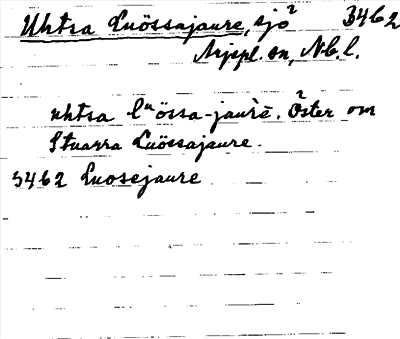 Uhtsa Luössajaure, sjö² 3462
Arjepl. sn, Nb. l.
uhtsa lᵘössa-jaurē. Öster² om
Stuarra Luössajaure.
3462 Luosejaure